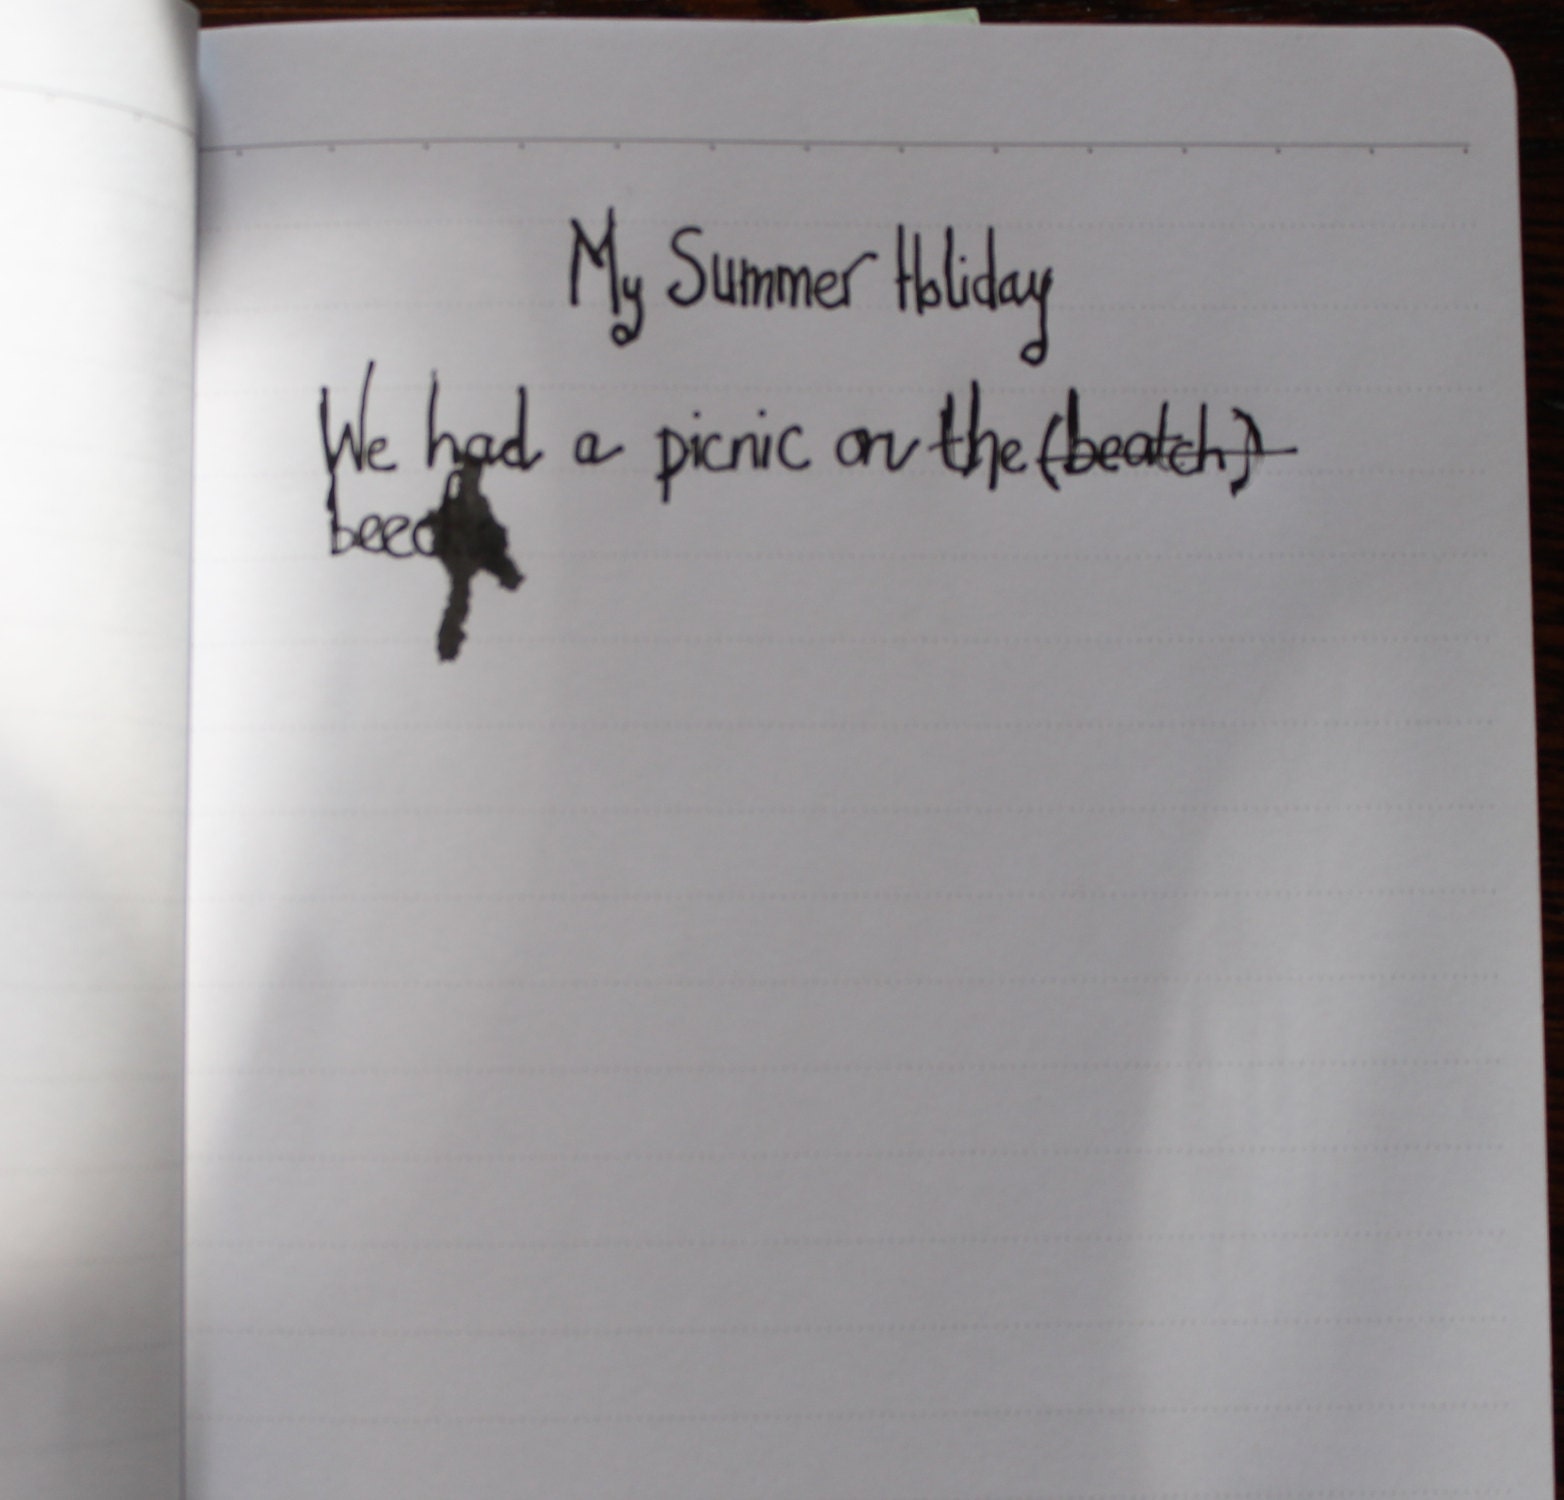 My Summer Holiday
We had a picnic on the (beatch)